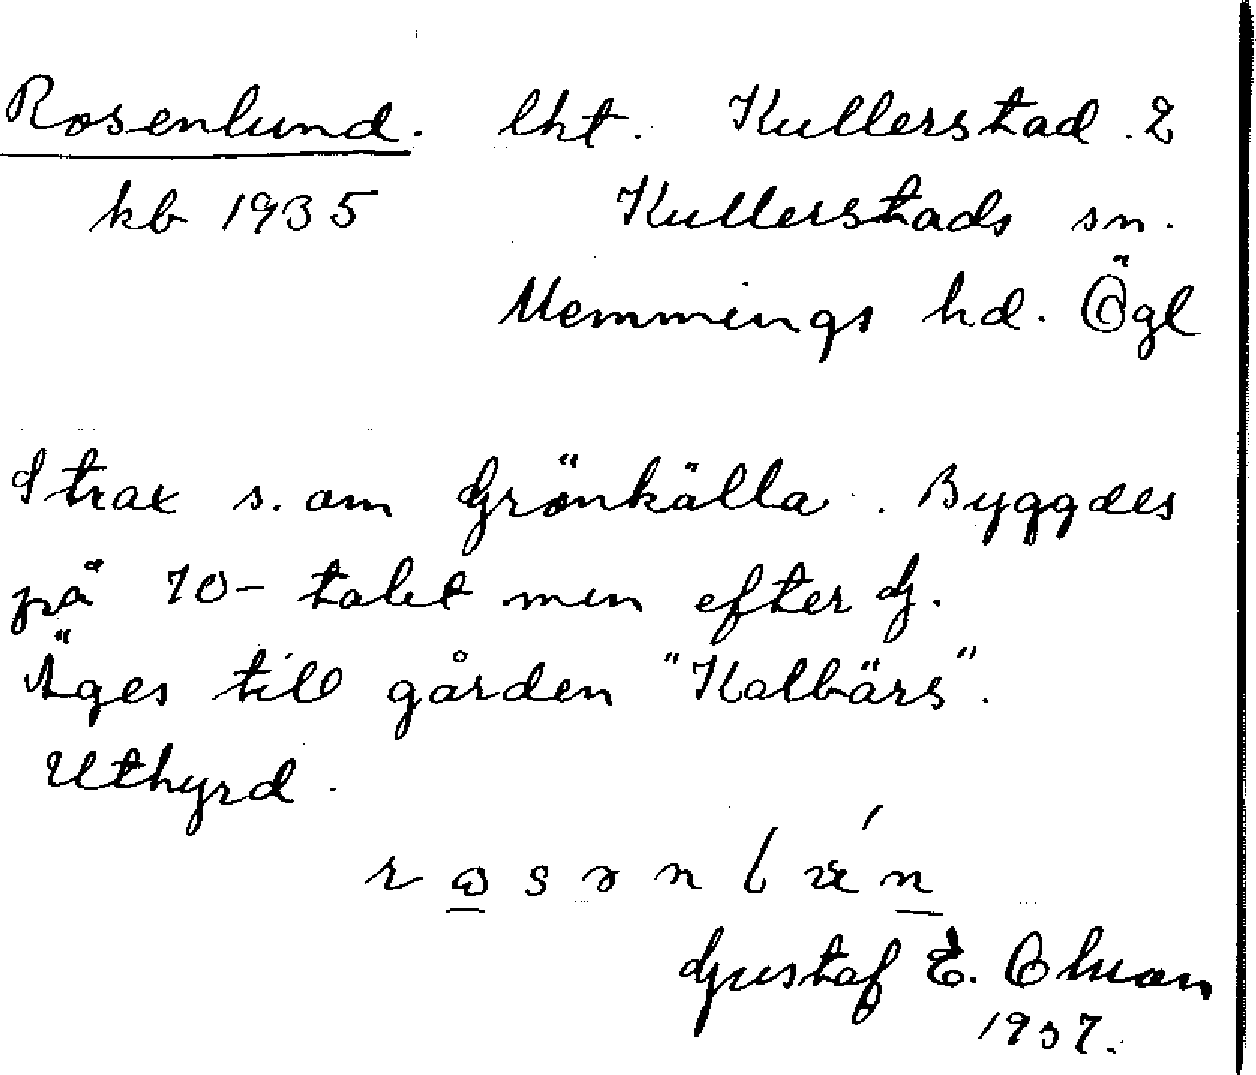 Rosenlund. lht. Kullerstad. 2
kb 1935 Kullerstads sn.
Memmings hd. Ögl
Strax s. om Grönkälla. Byggdes
på 70-talet men efter G.
Äges till gården "Kalbärs".
Uthyrd.
Gustaf E.
1937.